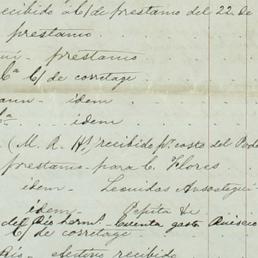 recibido a C/ de prestamo del 22 de
prestamo
prestamo
Cª C/ de corretage
idem
Cª idem
(M. R. Hs, recibido pr costo del Pode
prestamo para C. Flores
idem Leonidas Ansoategui
idem Pepita de
del Rio herms Cuenta gasto Quisco
C/ de corretage
Rio efectivo recibido